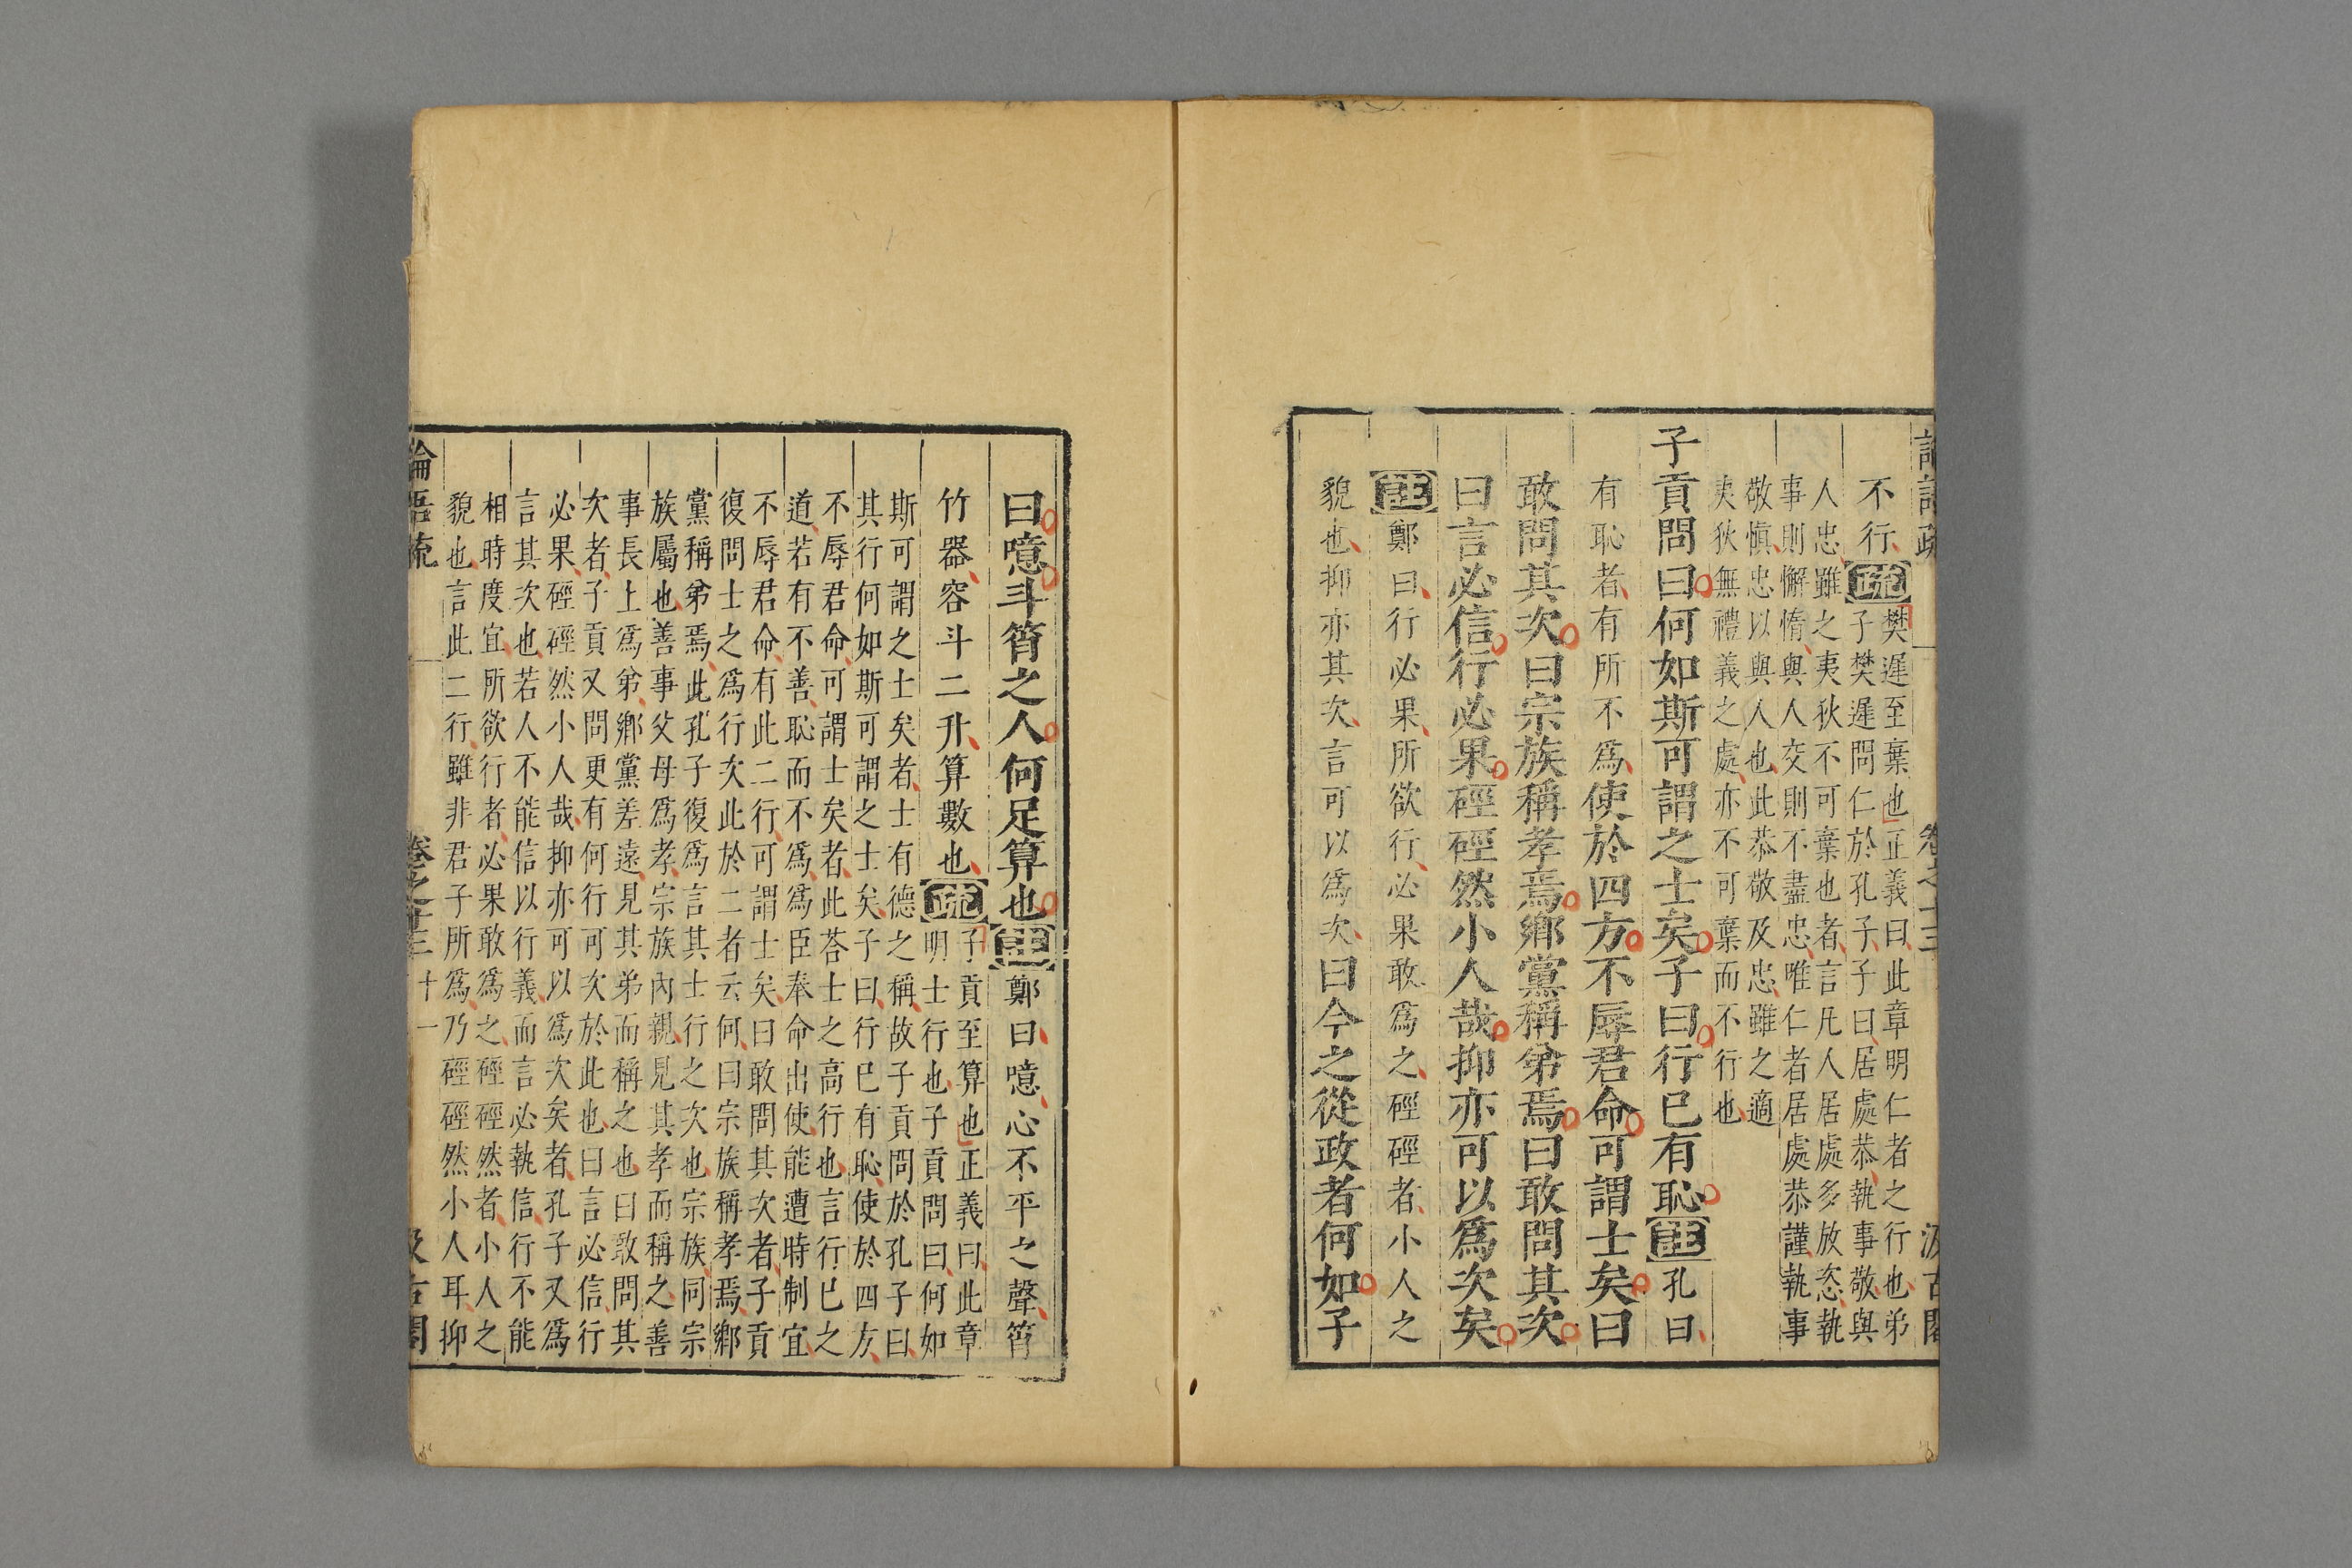 論語疏 卷之十三 汲古閣
不行疏樊遲至棄也正義曰此章明仁者之行也弟
子樊遲問仁於孔子子曰居處恭執事敬與
人忠雖之夷狄不可棄也者言凡人居處多放恣執
事則懈惰與人交則不盡忠唯仁者居處恭謹執事
敬慎忠以與人也此恭敬及忠雖之適
夷狄無禮義之處亦不可棄而不行也
子貢問曰何如斯可謂之士矣子曰行已有恥註孔曰
有恥者有所不爲使於四方不辱君命可謂士矣曰
敢問其次曰宗族稱孝焉鄉黨稱弟焉曰敢問其次
曰言必信行必果硜硜然小人哉抑亦可以爲次矣
註鄭曰行必果所欲行必果敢爲之硜硜者小人之
貌也抑亦其次言可以爲次曰今之從政者何如子
曰噫斗筲之人何足算也註鄭曰噫心不平之聲筲
竹器容斗二升算數也疏子貢至算也正義曰此章
明士行也子貢問曰何如
斯可謂之士矣者士有德之稱故子貢問於孔子曰
其行何如斯可謂之士矣子曰行已有恥使於四方
不辱君命可謂士矣者此荅士之高行也言行已之
道若有不善恥而不爲爲臣奉命出使能遭時制宜
不辱君命有此二行可謂士矣曰敢問其次者子貢
復問士之爲行次此於二者云何曰宗族稱孝焉鄉
黨稱弟焉此孔子復爲言其士行之次也宗族同宗
族屬也善事父母爲孝宗族內親見其孝而稱之善
事長上爲弟鄉黨差遠見其弟而稱之也曰敢問其
次者子貢又問更有何行可次於此也曰言必信行
必果硜硜然小人哉抑亦可以爲次矣者孔子又爲
言其次也若人不能信以行義而言必執信行不能
相時度宜所欲行者必果敢爲之硜硜然者小人之
貌也言此二行雖非君子所爲乃硜硜然小人耳抑
論語疏 卷之十三 十一 汲古閣